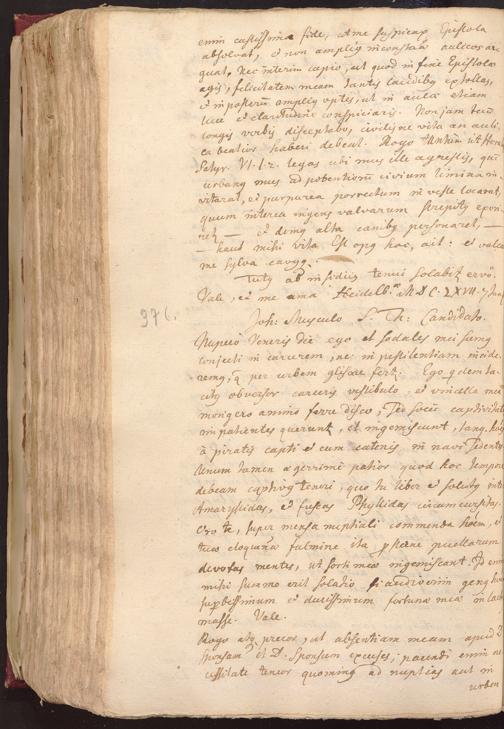 enim castissimæ fide, et me suspicax Epistola
absolvat, et non amplig inconstam aulicos ar-
guat. Nec interim capio, ut quod in fine Epistolæ
agis, felicitatem meam tantis laudibg extollas,
et in posterum amplig optes, ut in aulæ etiam
luce et claritudine conspiciaris. Non jam tecum
longis verbis disceptabo, civilisne vita an auli-
ca beatior haberi debeat. Rogo tantum ut Horat.
Satyr. VI. l. 2. legas ubi mus ille agrestis, quem
urbang mus ad potentiorum civium limina in-
vitarat, et purpurea porrectum in veste locarat,
quum interea ingens valvarum strepitg
et domg alta canibg personaret, —
— haud mihi vita Est opg hac, ait: et valeas
me sylva cavusq.
Tutg ab insidiis tenui solabit ervo.
Vale, et me ama. Heidelb. MDC.LXVII. 7
376.
Joh. Musculo S. Th: Candidato.
Nupero Veneris die ego et sodales mei sumg
conjecti in carcerem, ne in pestilentiam incide-
remg, q per urbem glisare fert. Ego qdem ta-
citg obversor carceris vestibulo, et vincella mea
non gro animo ferre disco, Sed socii captivitatis
impatientes querunt, et ingemiscunt, tanq.
à piratis capti et cum catenis in navi sedentes
Unum tamen ægerrime patior quod hoc tempore
debeam captivg teneri, quo tu liber et solutg inter
Amaryllidas, et fuscas Phyllidas circumcursitas.
Oro te, super mensa nuptiali commenda hoem, et
tuæ eloquentiæ fulmine ita pstare puellarum
devotas mentes, ut sorti meæ ingemiscant. Id enim
mihi summo erit solatio si audiverim geng hoc
supbissimum et durissimum fortunæ meæ in lacry-
masse. Vale.
Rogo atq precor, ut absentiam meam apud D.
Sponsam et D. Sponsum excuses; parendi enim ne-
cessitate teneor quoming ad nuptias aut in
urbem